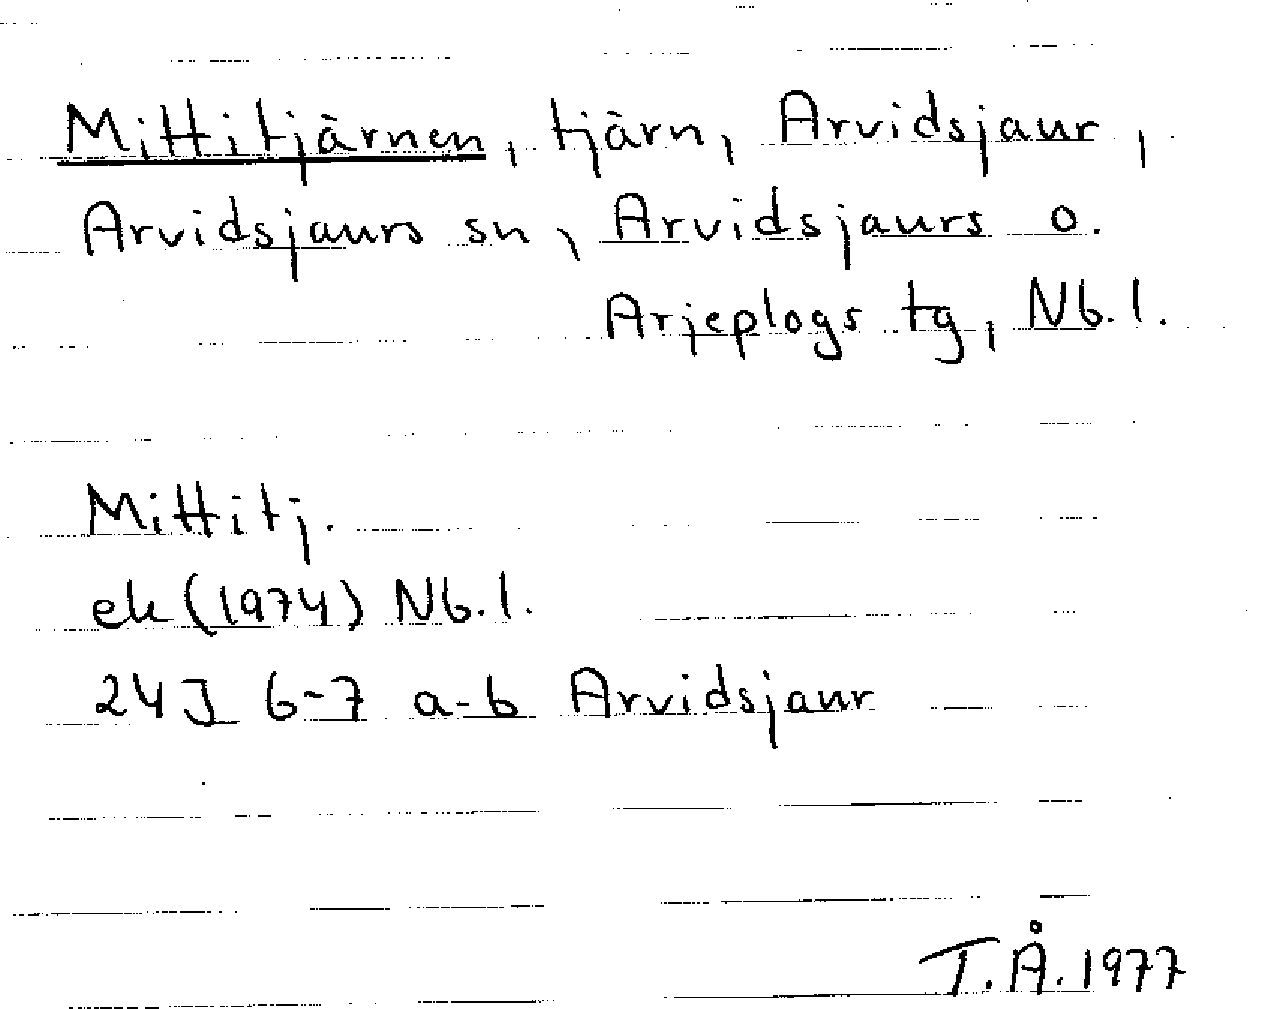 Mittitjärnen, tjärn, Arvidsjaur,
Arvidsjaurs sn, Arvidsjaurs o.
Arjeplogs tg, Nb.l.
Mittitj.
ek (1974) Nb.l.
24J 6-7 a-b Arvidsjaur
T.Å. 1977